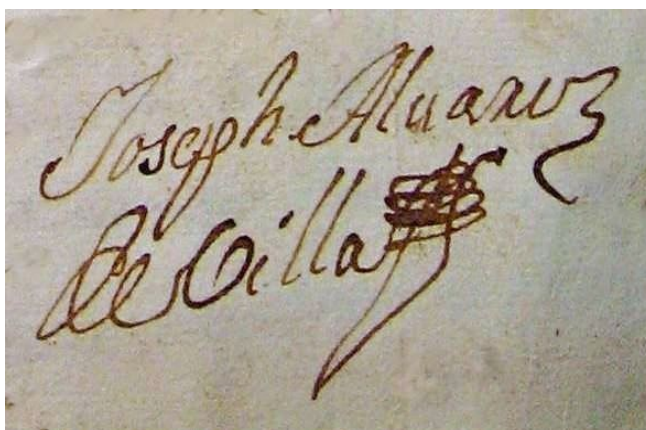 Joseph Aluarez
de Villa